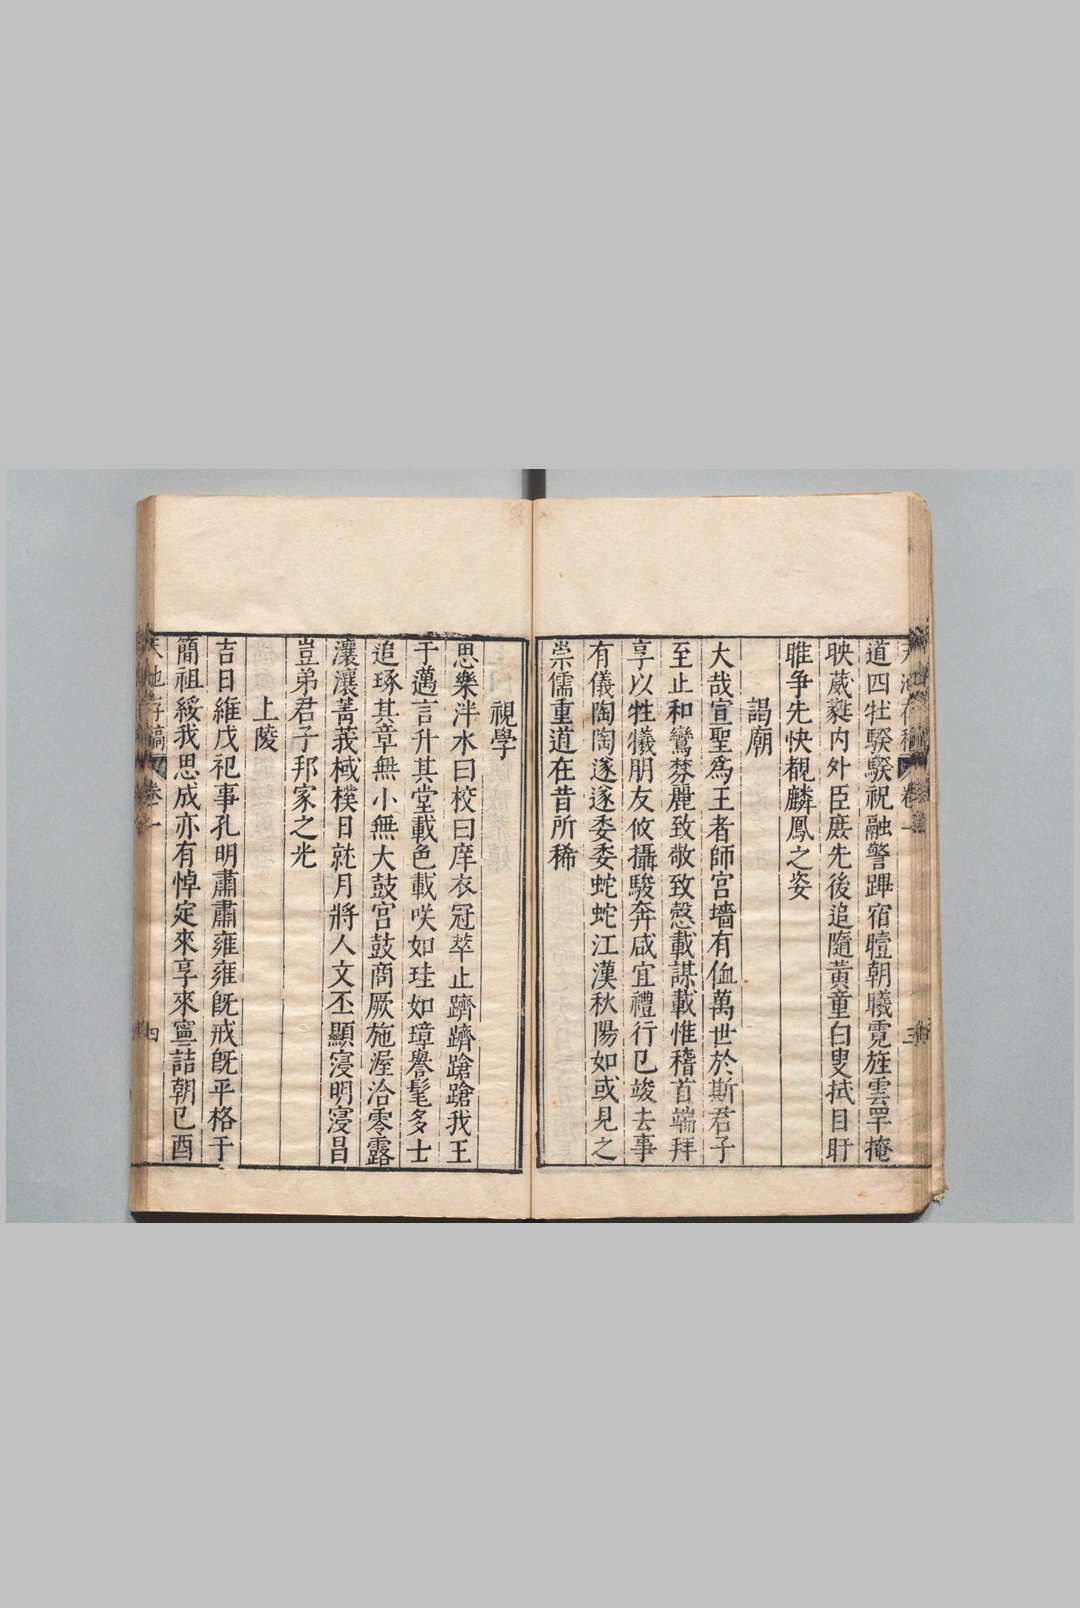 道四牡騤騤祝融警蹕宿曀朝曦霓旌雲罕掩
映葳蕤内外臣庶先後追隨黃童白叟拭目盱
睢争先快覩麟鳳之姿
謁廟
大哉宣聖爲王者師宮墻有侐萬世於斯君子
至止和鸞棽麗致敬致愨載謀載惟稽首端拜
享以牲犧朋友攸攝駿奔咸宜禮行已竣去事
有儀陶陶遂遂委委蛇蛇江漢秋陽如或見之
崇儒重道在昔所稀
視學
思樂泮水曰校曰庠衣冠萃止躋躋蹌蹌我王
于邁言升其堂載色載咲如珪如璋譽髦多士
追琢其章無小無大鼓宫鼓商厥施渥洽零露
瀼瀼菁莪棫樸日就月將人文丕顯寖明寖昌
豈弟君子邦家之光
上陵
吉日維戊祀事孔明肅肅雍雍既戒既平格于
簡祖綏我思成亦有悼定來享來寧詰朝已酉
天池存稿 卷一 四